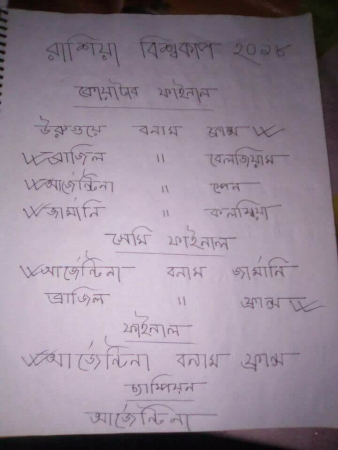 রাশিয়া বিশ্বকাপ ২০১৮
কোয়ার্টার ফাইনাল
উরুগুয়ে বনাম ফ্রান্স
ব্রাজিল " বেলজিয়াম
আর্জেন্টিনা " স্পেন
জার্মানি " কলম্বিয়া
সেমি ফাইনাল
আর্জেন্টিনা বনাম জার্মানি
ব্রাজিল " ফ্রান্স
ফাইনাল
আর্জেন্টিনা বনাম ফ্রান্স
চ্যাম্পিয়ন
আর্জেন্টিনা